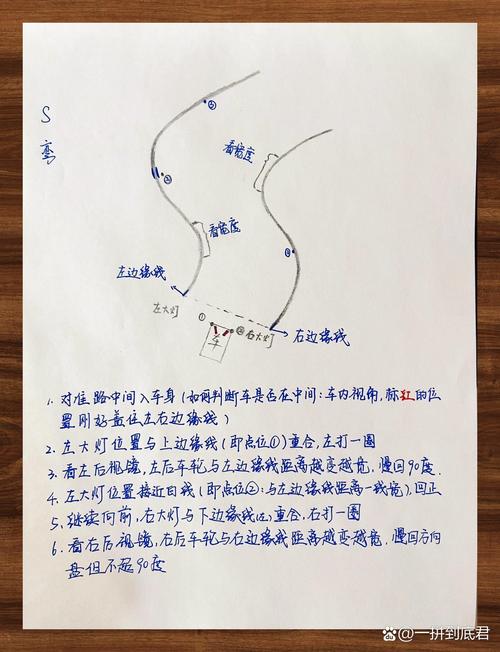 S
弯
③
看宽度
②
看宽度
④
左边缘线
左大灯
①
右大灯
车
右边缘线
1. 对准路中间入车身(如何判断车是否在中间:车内视角,标红的位
置刚好盖住左右边缘线)
2. 左大灯位置与上边缘线(即点位①)重合,左打一圈
3. 看左后视镜,左后车轮与左边缘线距离越变越宽,慢回90度.
4. 左大灯位置接近白线(即点位②:与左边缘线距离一线宽),回正
5. 继续向前,右大灯与下边缘线重合,右打一圈
6. 看右后视镜,右后车轮与右边缘线距离越变越宽,慢回方向
盘但不超90度
@一拼到底君